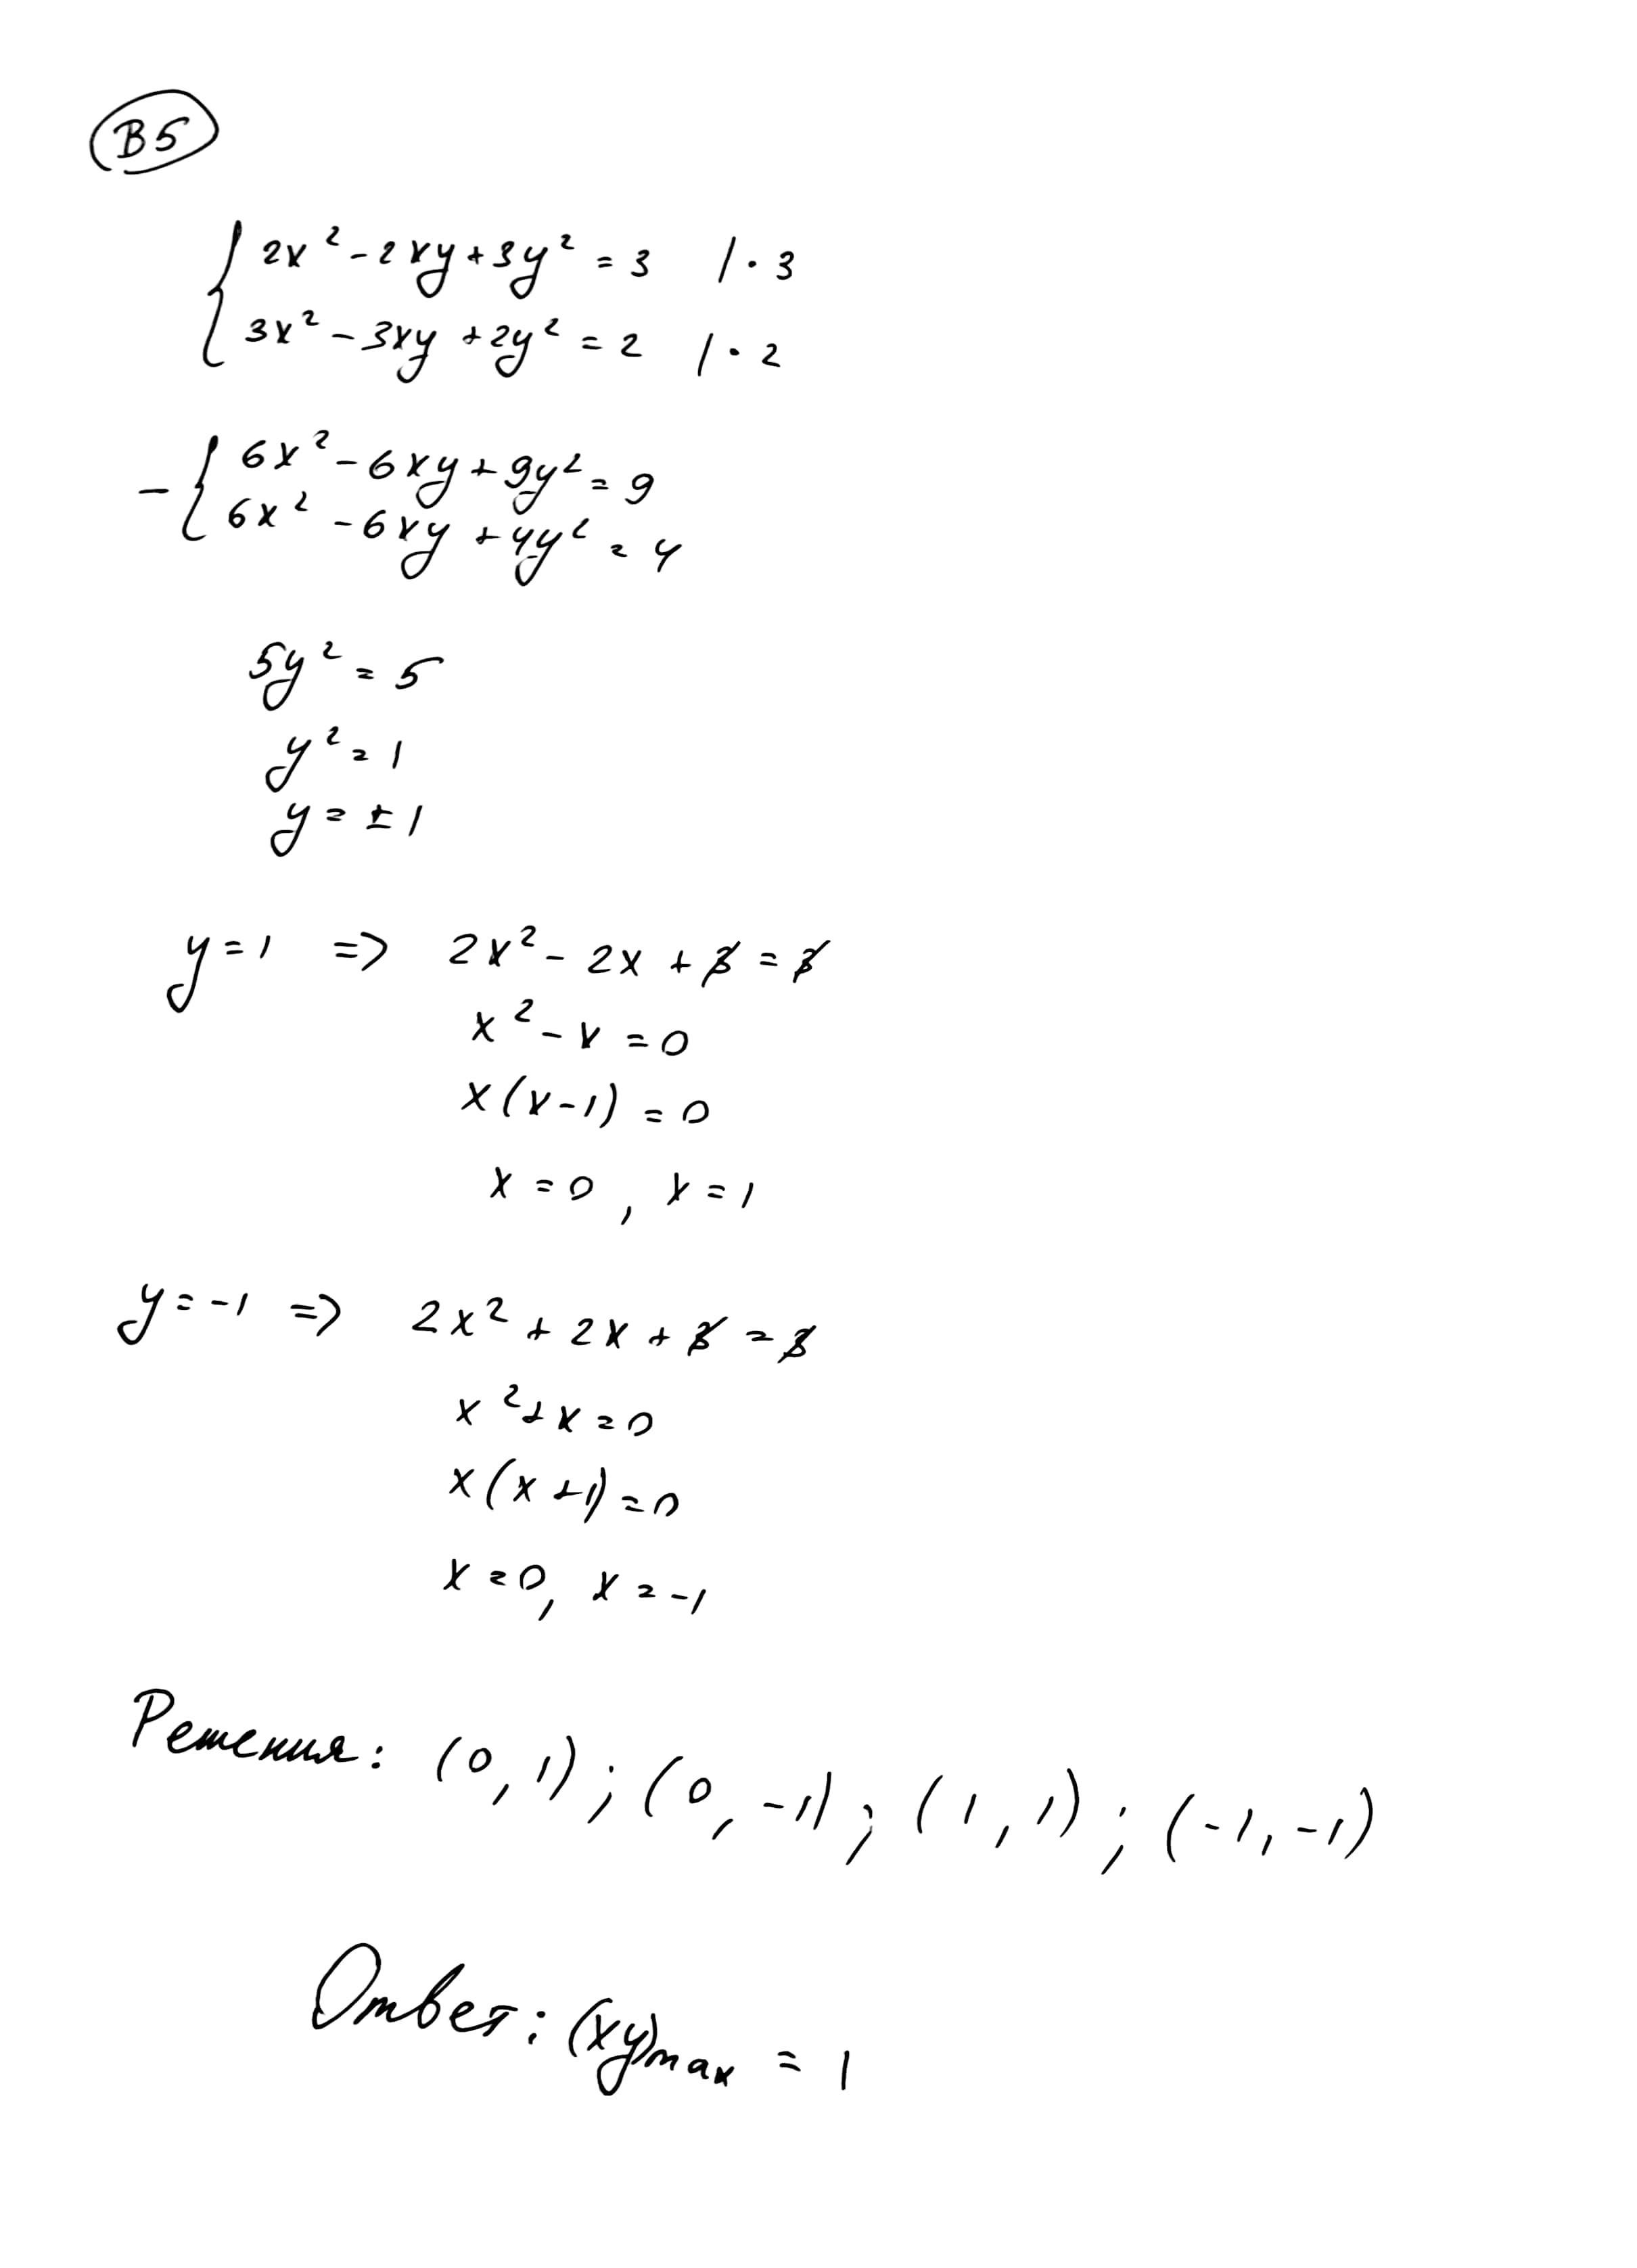 B5
2x² - 2xy + 3y² = 3 | · 3
3x² - 3xy + 2y² = 2 | · 2
- { 6x² - 6xy + 9y² = 9
6x² - 6xy + 4y² = 4
5y² = 5
y² = 1
y = ± 1
y = 1 ⇒ 2x² - 2x + 3 = 3
x² - x = 0
x(x - 1) = 0
x = 0, x = 1
y = -1 ⇒ 2x² + 2x + 3 = 3
x² + x = 0
x(x + 1) = 0
x = 0, x = -1
Решения: (0, 1); (0, -1); (1, 1); (-1, -1)
Ответ: (xy)max = 1